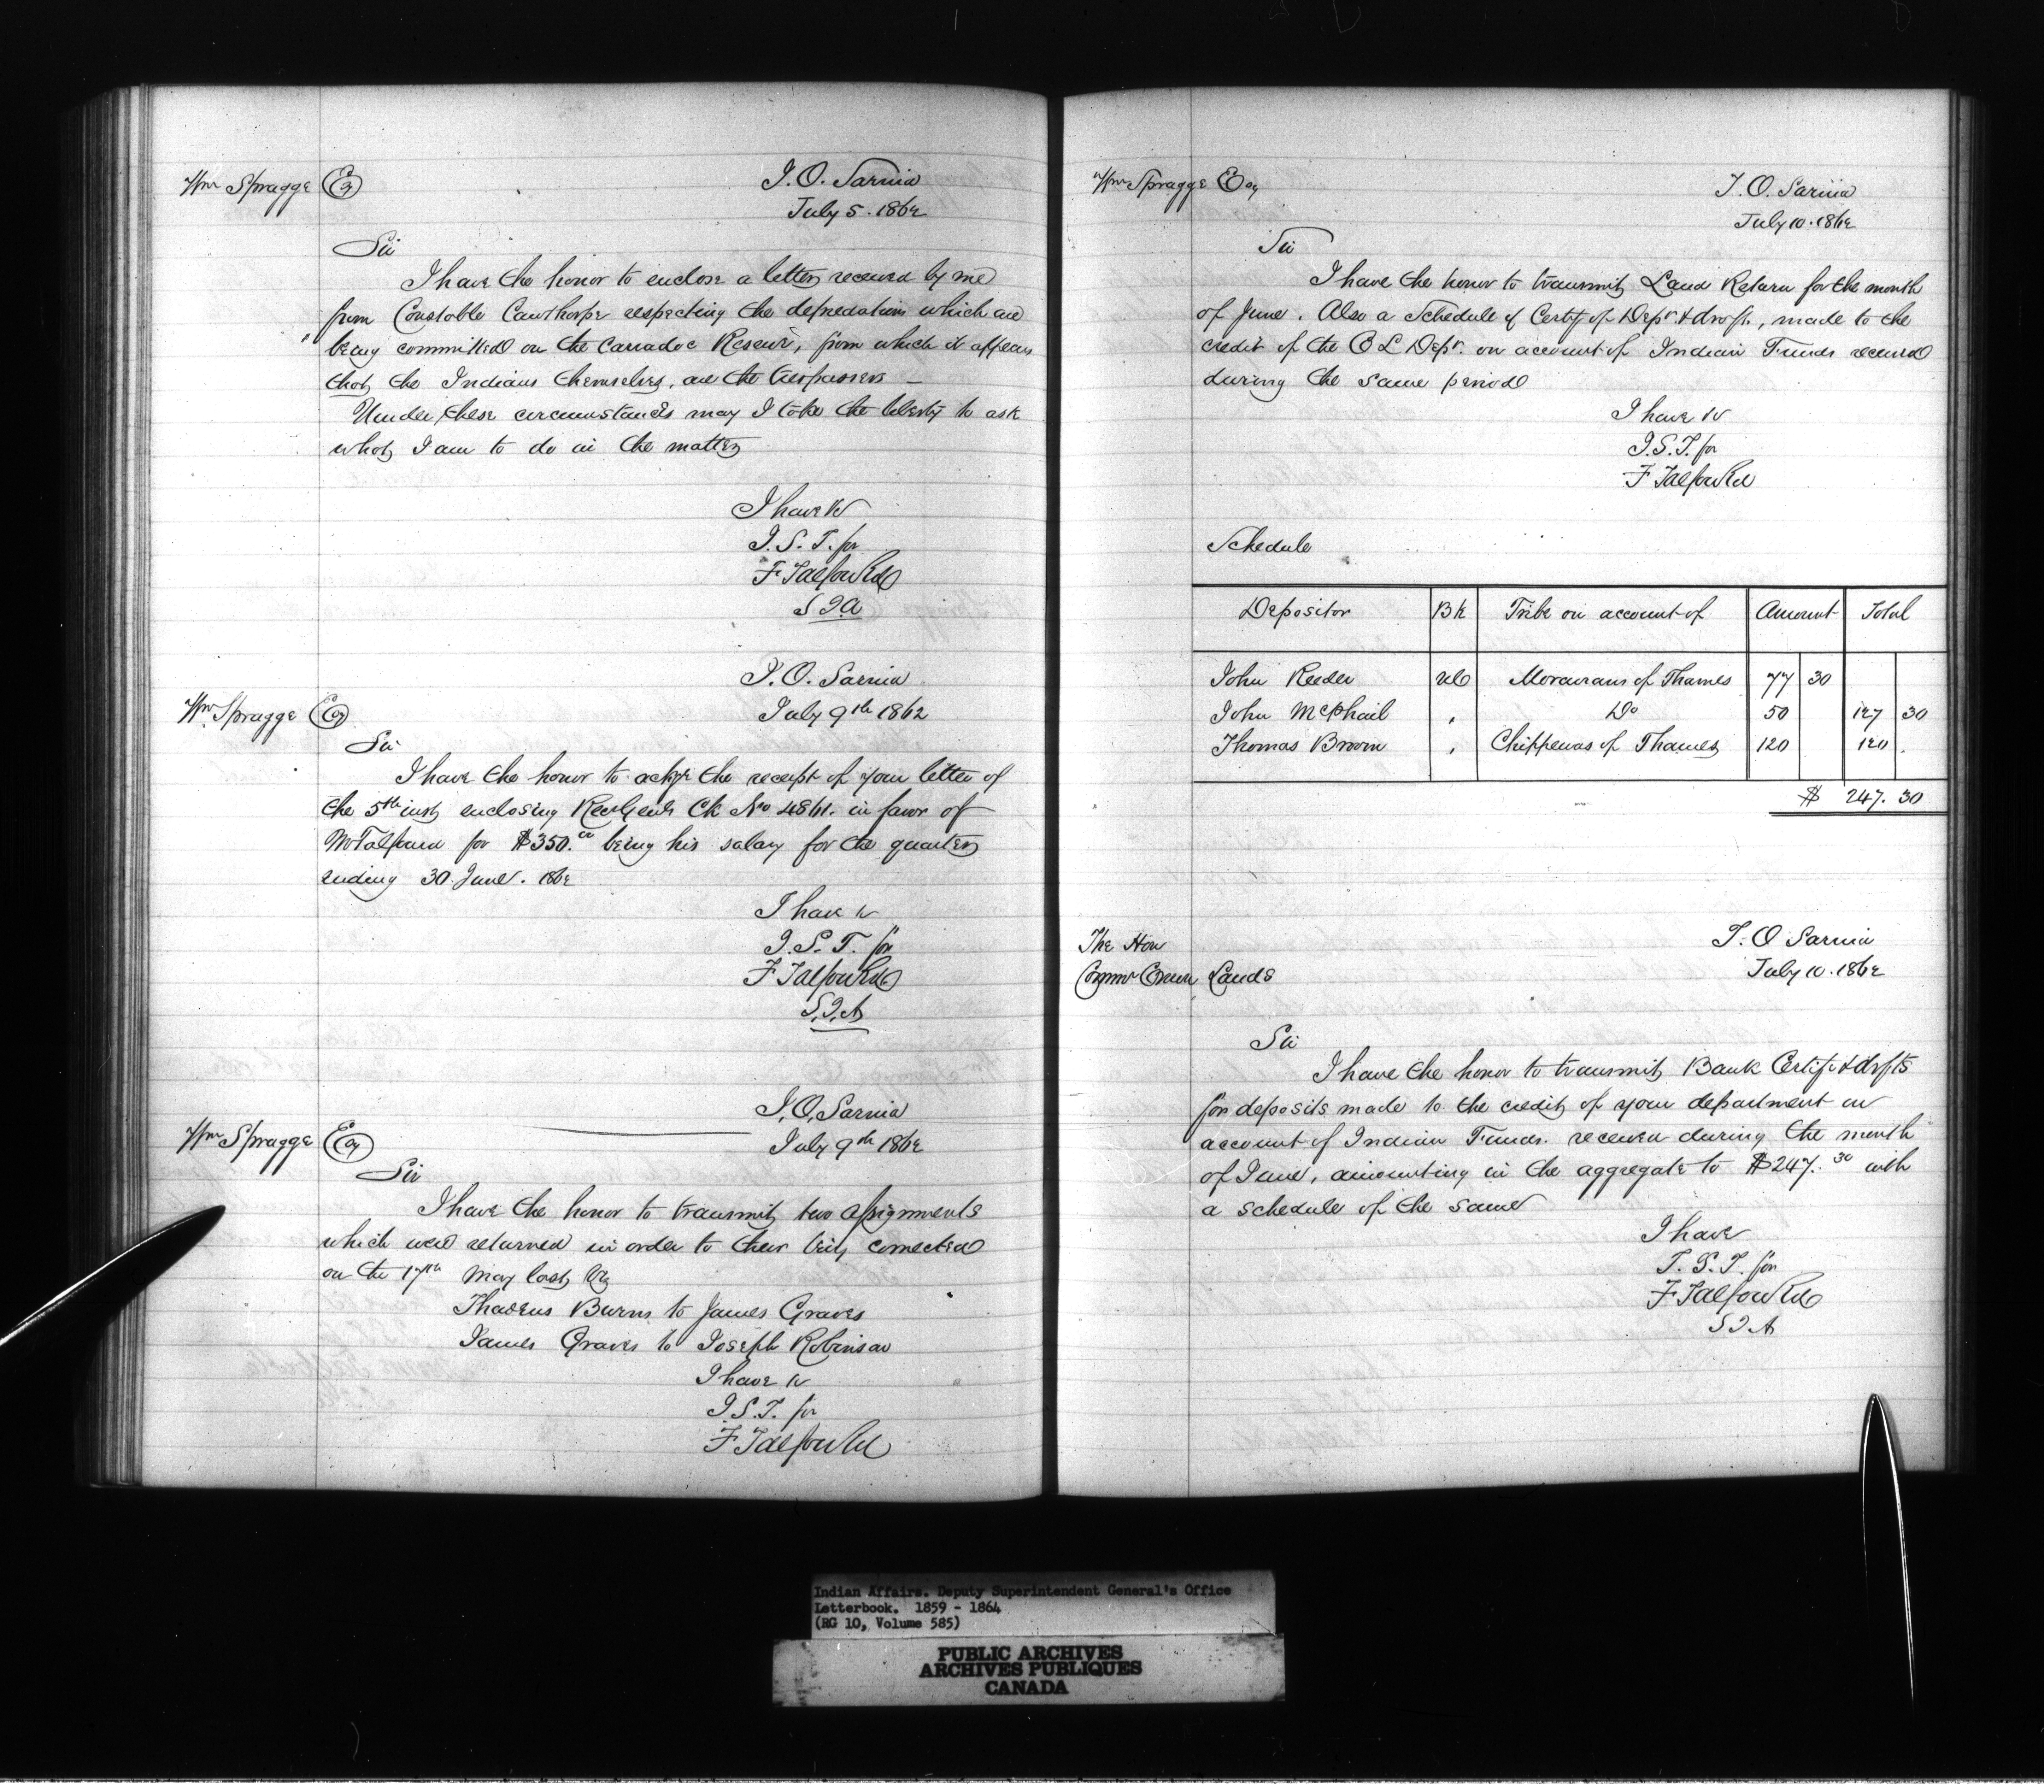 Wm Spragge Esq
I. O. Sarnia
July 5. 1862
Sir
I have the honor to enclose a letter received by me
from Constable Cawthorpe respecting the depredations which are
being committed on the Carradoc Reserve, from which it appears
that the Indians themselves, are the trespassers —
Under these circumstances may I take the liberty to ask
what I am to do in the matter
I have &c
I. S. T. for
F Talfourd
S I A
I. O. Sarnia
July 9th 1862
Wm Spragge Esq
Sir
I have the honor to ackge the receipt of your letter of
the 5th inst enclosing Ck No 4861. in favor of
Mr Talfourd for $350.00 being his salary for the quarter
ending 30 June. 1862
I have &c
I. S. T. for
F Talfourd
S. I. A
I. O. Sarnia
July 9th 1862
Wm Spragge Esq
Sir
I have the honor to transmit two assignments
which were returned in order to their being corrected
on the 17th May last viz
Thadeus Burns to James Graves
James Graves to Joseph Robinson
I have &c
I. S. T. for
F Talfourd
Wm Spragge Esq
I. O. Sarnia
July 10. 1862
Sir
I have the honor to transmit Land Return for the month
of June. Also a Schedule of Certif of Dept & drafts, made to the
credit of the C L Dept. on account of Indian Funds received
during the same period
I have &c
I. S. T. for
F Talfourd
Schedule
Depositor Bk Tribe on account of Amount Total
John Reeder UC Moravians of Thames 77 30
John McPhail " Do 50 127 30
Thomas Brown " Chippewas of Thames 120 120 .
$ 247. 30
The Hon
Commr Crown Lands
I. O Sarnia
July 10. 1862
Sir
I have the honor to transmit Bank Certif & drfts
for deposits made to the credit of your department on
account of Indian Funds. received during the month
of June, amounting in the aggregate to $247.30 with
a schedule of the same
I have
I. S. T. for
F Talfourd
S I A
Indian Affairs. Deputy Superintendent General's Office
Letterbook. 1859 - 1864
(RG 10, Volume 585)
PUBLIC ARCHIVES
ARCHIVES PUBLIQUES
CANADA